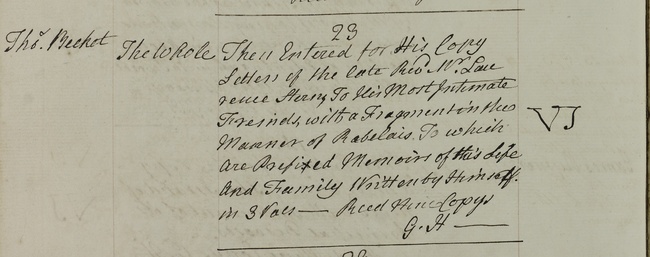 23
Tho.s Becket
The Whole
Then Entered for His Copy
Letters of the late Rev.d Mr. Lau
rence Stern, To His Most Intimate
Freinds, with a Fragment in the
Manner of Rabelais. To which
are Prefixed Memoirs of his Life
And Family Written by Himself.
in 3 Vols — Reed Nine Copys
G. H —
VI